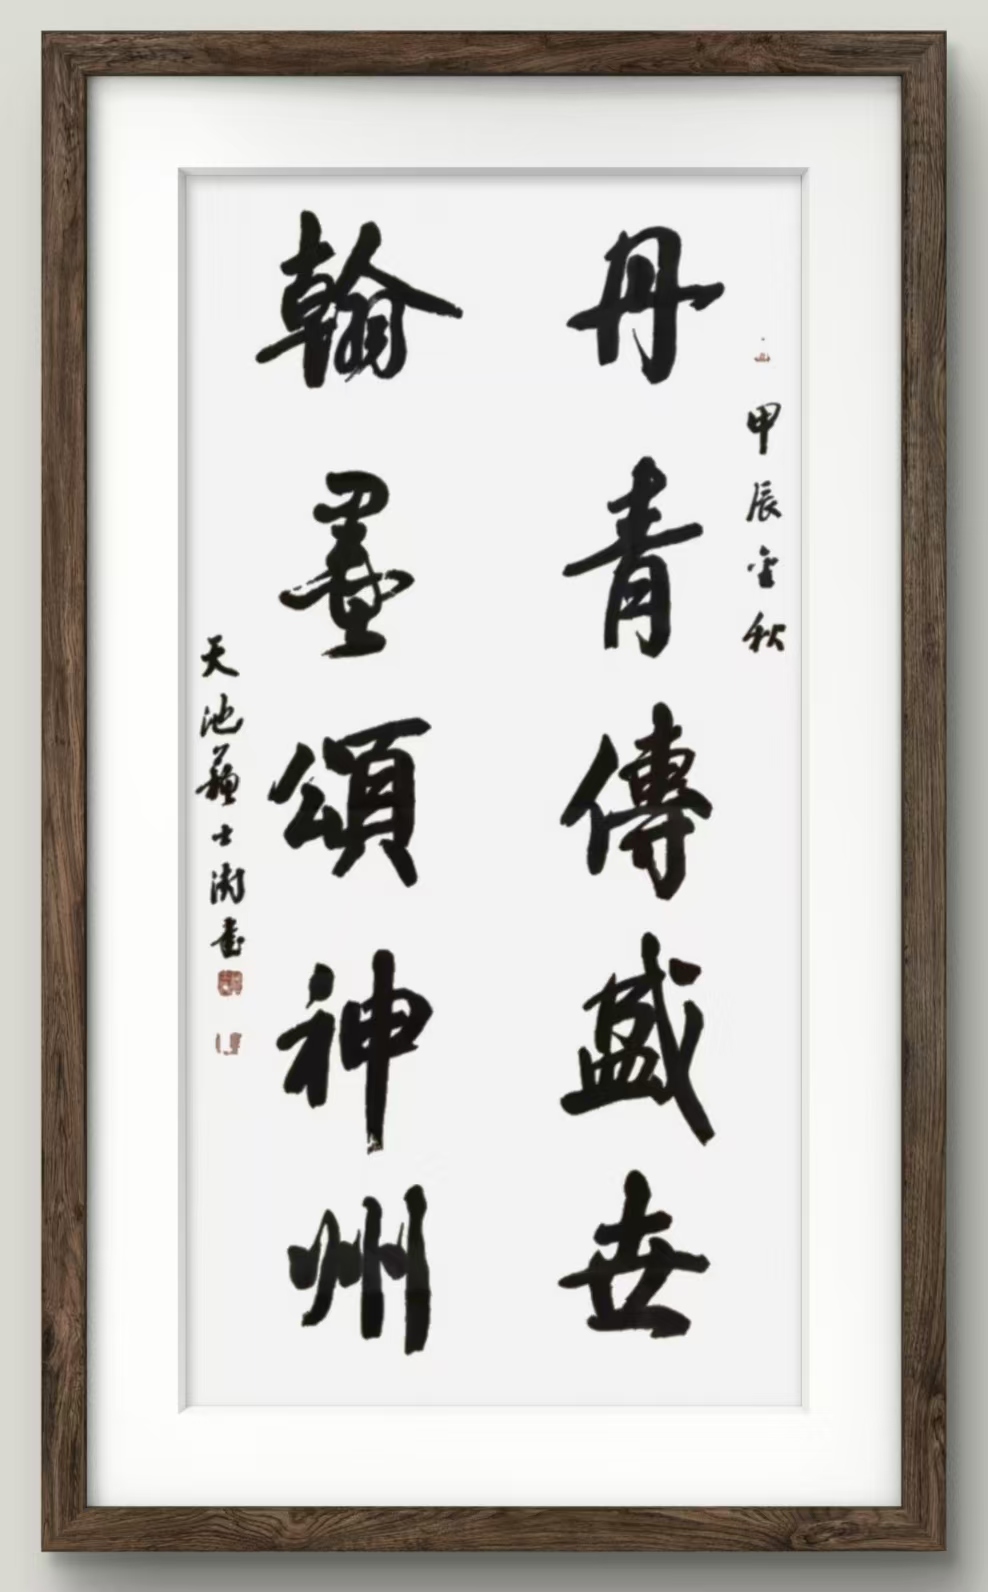 甲辰金秋
丹青傳盛世
翰墨頌神州
天池蘇士澍書